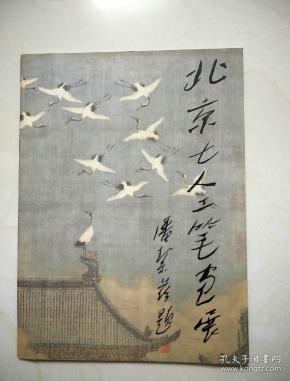 北京七人工笔画展
潘絜兹题
孔夫子旧书网
kongfz.com